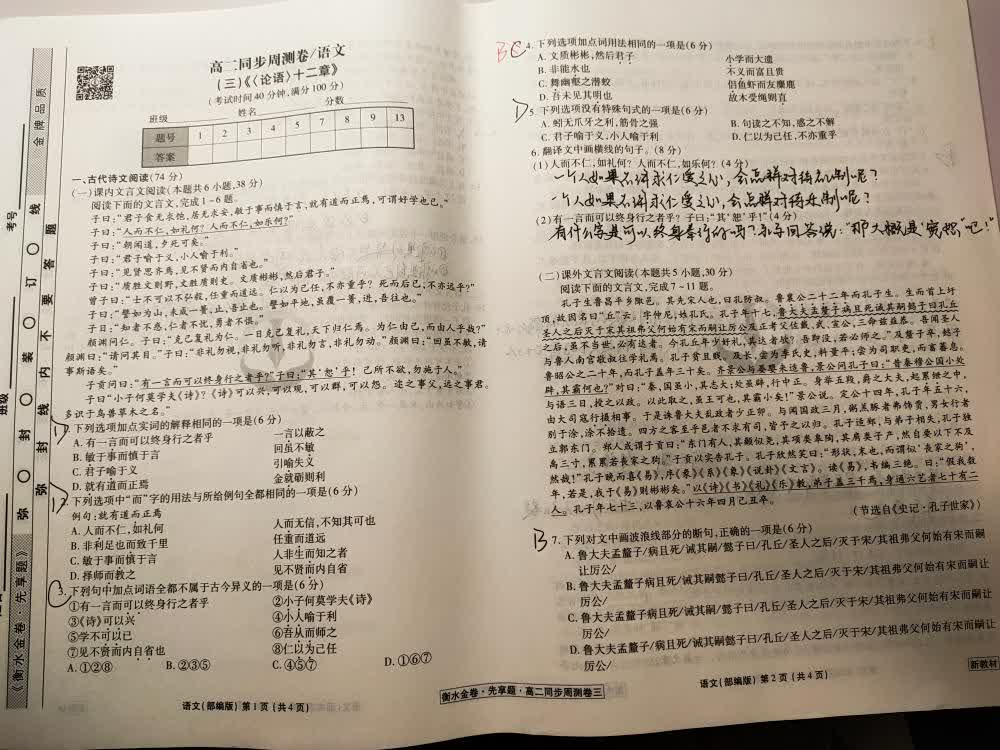 金牌品质
考号
班级
弥 封 线 内 不 要 答 题
弥 〇 封 〇 装 〇 订 〇 线
《衡水金卷·先享题》
高二同步周测卷/语文
(三)《〈论语〉十二章》
(考试时间40分钟,满分100分)
班级 姓名 分数
题号 1 2 3 4 5 7 8 9 13
答案
一、古代诗文阅读(74分)
(一)课内文言文阅读(本题共6小题,38分)
阅读下面的文言文,完成1~6题。
子曰:“君子食无求饱,居无求安,敏于事而慎于言,就有道而正焉,可谓好学也已。”
子曰:“人而不仁,如礼何?人而不仁,如乐何?”
子曰:“朝闻道,夕死可矣。”
子曰:“君子喻于义,小人喻于利。”
子曰:“见贤思齐焉,见不贤而内自省也。”
子曰:“质胜文则野,文胜质则史。文质彬彬,然后君子。”
曾子曰:“士不可以不弘毅,任重而道远。仁以为己任,不亦重乎?死而后已,不亦远乎?”
子曰:“譬如为山,未成一篑,止,吾止也。譬如平地,虽覆一篑,进,吾往也。”
子曰:“知者不惑,仁者不忧,勇者不惧。”
颜渊问仁。子曰:“克己复礼为仁。一日克己复礼,天下归仁焉。为仁由己,而由人乎哉?”
颜渊曰:“请问其目。”子曰:“非礼勿视,非礼勿听,非礼勿言,非礼勿动。”颜渊曰:“回虽不敏,请
事斯语矣。”
子贡问曰:“有一言而可以终身行之者乎?”子曰:“其‘恕’乎!己所不欲,勿施于人。”
子曰:“小子何莫学夫《诗》?《诗》可以兴,可以观,可以群,可以怨。迩之事父,远之事君。
多识于鸟兽草木之名。”
D
1.下列选项加点实词的解释相同的一项是(6分)
A.有一言而可以终身行之者乎 一言以蔽之
B.敏于事而慎于言 回虽不敏
C.君子喻于义 引喻失义
D.就有道而正焉 金就砺则利
D
2.下列选项中“而”字的用法与所给例句全都相同的一项是(6分)
例句:就有道而正焉
A.人而不仁,如礼何 人而无信,不知其可也
B.非利足也而致千里 任重而道远
C.敏于事而慎于言 人非生而知之者
D.择师而教之 见不贤而内自省
C
3.下列句中加点词语全都不属于古今异义的一项是(6分)
①有一言而可以终身行之者乎 ②小子何莫学夫《诗》
③《诗》可以兴 ④小人喻于利
⑤学不可以已 ⑥吾从而师之
⑦见不贤而内自省也 ⑧仁以为己任
A.①②⑧ B.②③⑤ C.④⑤⑦ D.①⑥⑦
语文(部编版) 第1页(共4页)
衡水金卷·先享题·高二同步周测卷三
BC
4.下列选项加点词用法相同的一项是(6分)
A.文质彬彬,然后君子 小学而大遗
B.非能水也 不义而富且贵
C.舞幽壑之潜蛟 侣鱼虾而友麋鹿
D.吾未见其明也 故木受绳则直
D
5.下列选项没有特殊句式的一项是(6分)
A.蚓无爪牙之利,筋骨之强 B.句读之不知,惑之不解
C.君子喻于义,小人喻于利 D.仁以为己任,不亦重乎
6.翻译文中画横线的句子。(8分)
(1)人而不仁,如礼何?人而不仁,如乐何?(4分)
一个人如果不讲求仁爱之心,会怎样对待礼制呢?
一个人如果不讲求仁爱之心,会怎样对待乐制呢?
(2)有一言而可以终身行之者乎?子曰:“其‘恕’乎!”(4分)
有什么字是可以终身奉行的吗?孔子回答说:“那大概是‘宽恕’吧!”
(二)课外文言文阅读(本题共5小题,30分)
阅读下面的文言文,完成7~11题。
孔子生鲁昌平乡陬邑。其先宋人也,曰孔防叔。鲁襄公二十二年而孔子生。生而首上圩
顶,故因名曰“丘”云。字仲尼,姓孔氏。孔子年十七,鲁大夫孟釐子病且死诫其嗣懿子曰孔丘
圣人之后灭于宋其祖弗父何始有宋而嗣让厉公及正考父佐戴、武、宣公,三命兹益恭。吾闻圣人
之后,虽不当世,必有达者。今孔丘年少好礼,其达者欤?吾即没,若必师之。”及釐子卒,懿子
与鲁人南宫敬叔往学礼焉。孔子贫且贱。及长,尝为季氏史,料量平;尝为司职吏,而畜蕃息。
鲁昭公之二十年,而孔子盖年三十矣。齐景公与晏婴来适鲁,景公问孔子曰:“昔秦穆公国小处
辟,其霸何也?”对曰:“秦,国虽小,其志大;处虽辟,行中正。身举五羖,爵之大夫,起累绁之中,
与语三日,授之以政。以此取之,虽王可也,其霸小矣!”景公说。定公十四年,孔子年五十六,
由大司寇行摄相事。于是诛鲁大夫乱政者少正卯。与闻国政三月,粥羔豚者弗饰贾,男女行者
别于涂,涂不拾遗。四方之客至乎邑者不求有司,皆予之以归。孔子适郑,与弟子相失,孔子独
立郭东门。郑人或谓子贡曰:“东门有人,其颡似尧,其项类皋陶,其肩类子产,然自要以下不及
禹三寸,累累若丧家之狗。”子贡以实告孔子。孔子欣然笑曰:“形状,末也,而谓似‘丧家之狗’,
然哉!”孔子晚而喜《易》,序《彖》《系》《象》《说卦》《文言》。读《易》,韦编三绝。曰:“假我数
年,若是,我于《易》则彬彬矣。”以《诗》《书》《礼》《乐》教,弟子盖三千焉,身通六艺者七十有二
人。孔子年七十三,以鲁哀公十六年四月己丑卒。
(节选自《史记·孔子世家》)
B
7.下列对文中画波浪线部分的断句,正确的一项是(6分)
A.鲁大夫孟釐子/病且死/诫其嗣/懿子曰/孔丘/圣人之后/灭于宋/其祖弗父何始有宋而嗣
让厉公/
B.鲁大夫孟釐子病且死/诫其嗣懿子曰/孔丘/圣人之后/灭于宋/其祖弗父何始有宋而嗣让
厉公/
C.鲁大夫孟釐子病且死/诫其嗣/懿子曰/孔丘/圣人之后/灭于宋/其祖弗父何始有宋而嗣让
厉公/
D.鲁大夫孟釐子/病且死/诫其嗣懿子曰/孔丘/圣人之后/灭于宋/其祖弗父何始有宋而嗣让
厉公/
新教材
语文(部编版) 第2页(共4页)